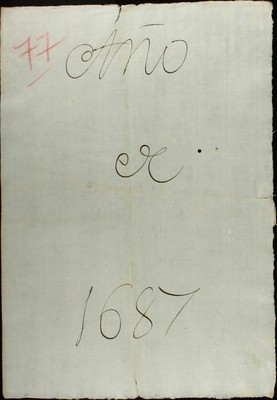 77
Año
de
1687